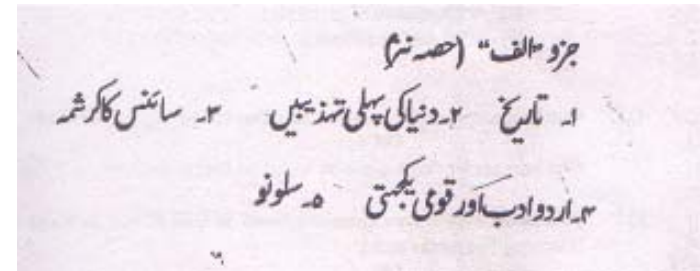 جزو "الف" (حصہ نثر)
۱۔ تاریخ ۲۔ دنیا کی پہلی تہذیبیں ۳۔ سائنس کا کرشمہ
۴۔ اردو ادب اور قومی یکجہتی ۵۔ سلونو